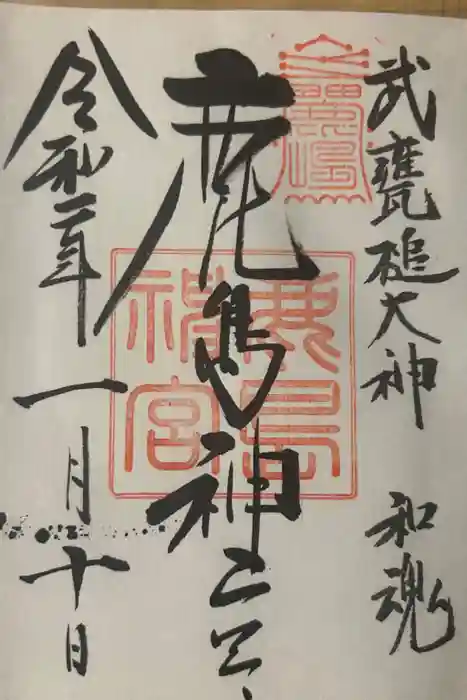 武甕槌大神 和魂
鹿島神宮
令和二年 一月十日
鹿島
鹿島神宮